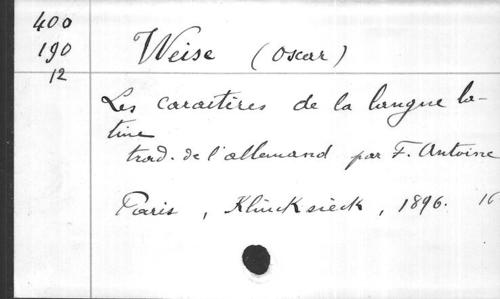 400
190
12
Weise (Oscar)
Les caractères de la langue la-
tine
trad. de l'allemand par F. Antoine
Paris, Klincksieck, 1896. 16